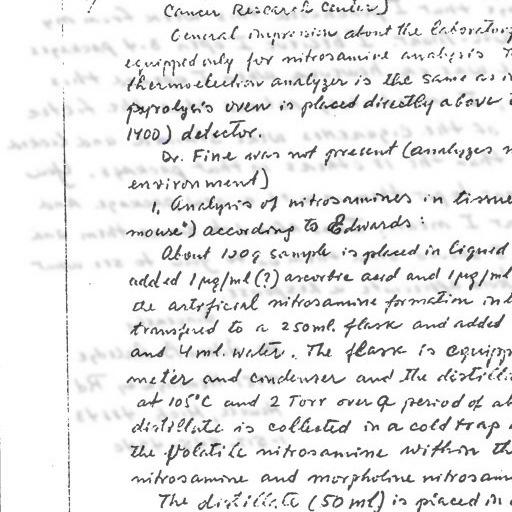 Cancer Research Center)
General impression about the laboratory
equipped only for nitrosamine analysis
thermoelection analyzer is the same as
pyrolysis oven is placed directly above
1400) detector.
Dr. Fine was not present (analyzes
environment)
1. Analysis of nitrosamines in tissue
mouse") according to Edwards:
About 120g sample is placed in liquid
added 1 µg/ml (?) ascorbic acid and 1 µg/ml
the artificial nitrosamine formation
transfered to a 250 ml. flask and added
and 4 ml. water. The flask is equipp
meter and condenser and the distilla
at 105°C and 2 Torr over a period of ab
distillate is collected in a cold trap
the volatile nitrosamine within th
nitrosamine and morpholine nitrosam
The distillate (50 ml) is placed in